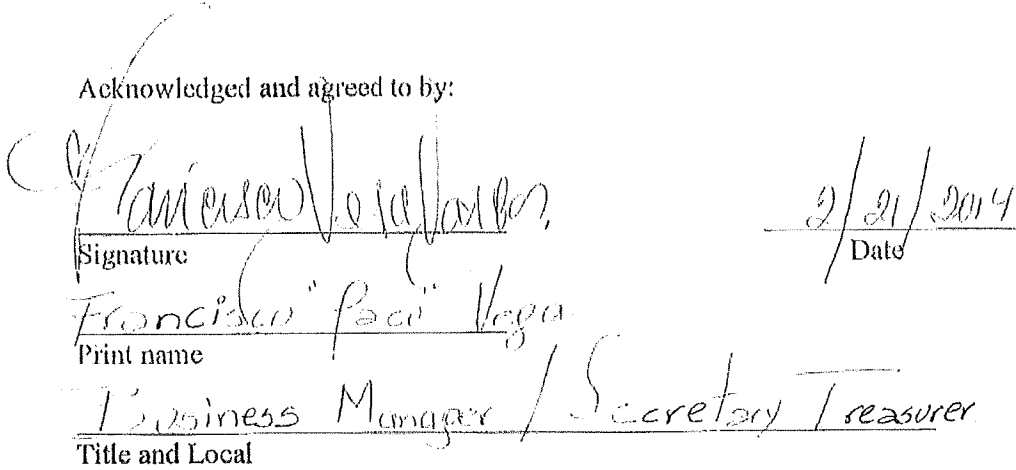 Acknowledged and agreed to by:
2/21/2014
Signature
Date
Francisco "Paco" Vega
Print name
Business Manager / Secretary Treasurer
Title and Local